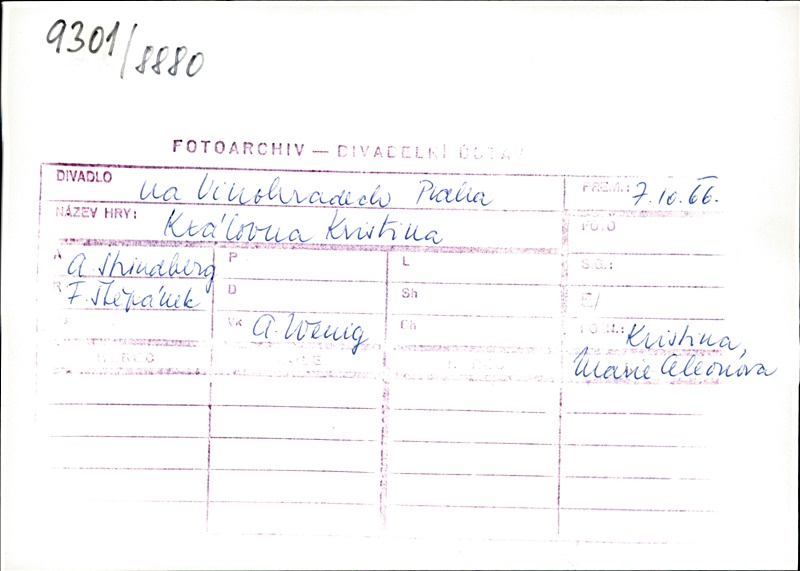 9301/8880
FOTOARCHIV — DIVADELNÍ ÚSTAV
DIVADLO na Vinohradech Praha PREM.: 7.10.66.
NÁZEV HRY: Královna Kristina FOTO
A A. Strindberg P L S.G.:
R F. Štěpánek D Sh
VK A. Wenig Ch Kristina,
Marie